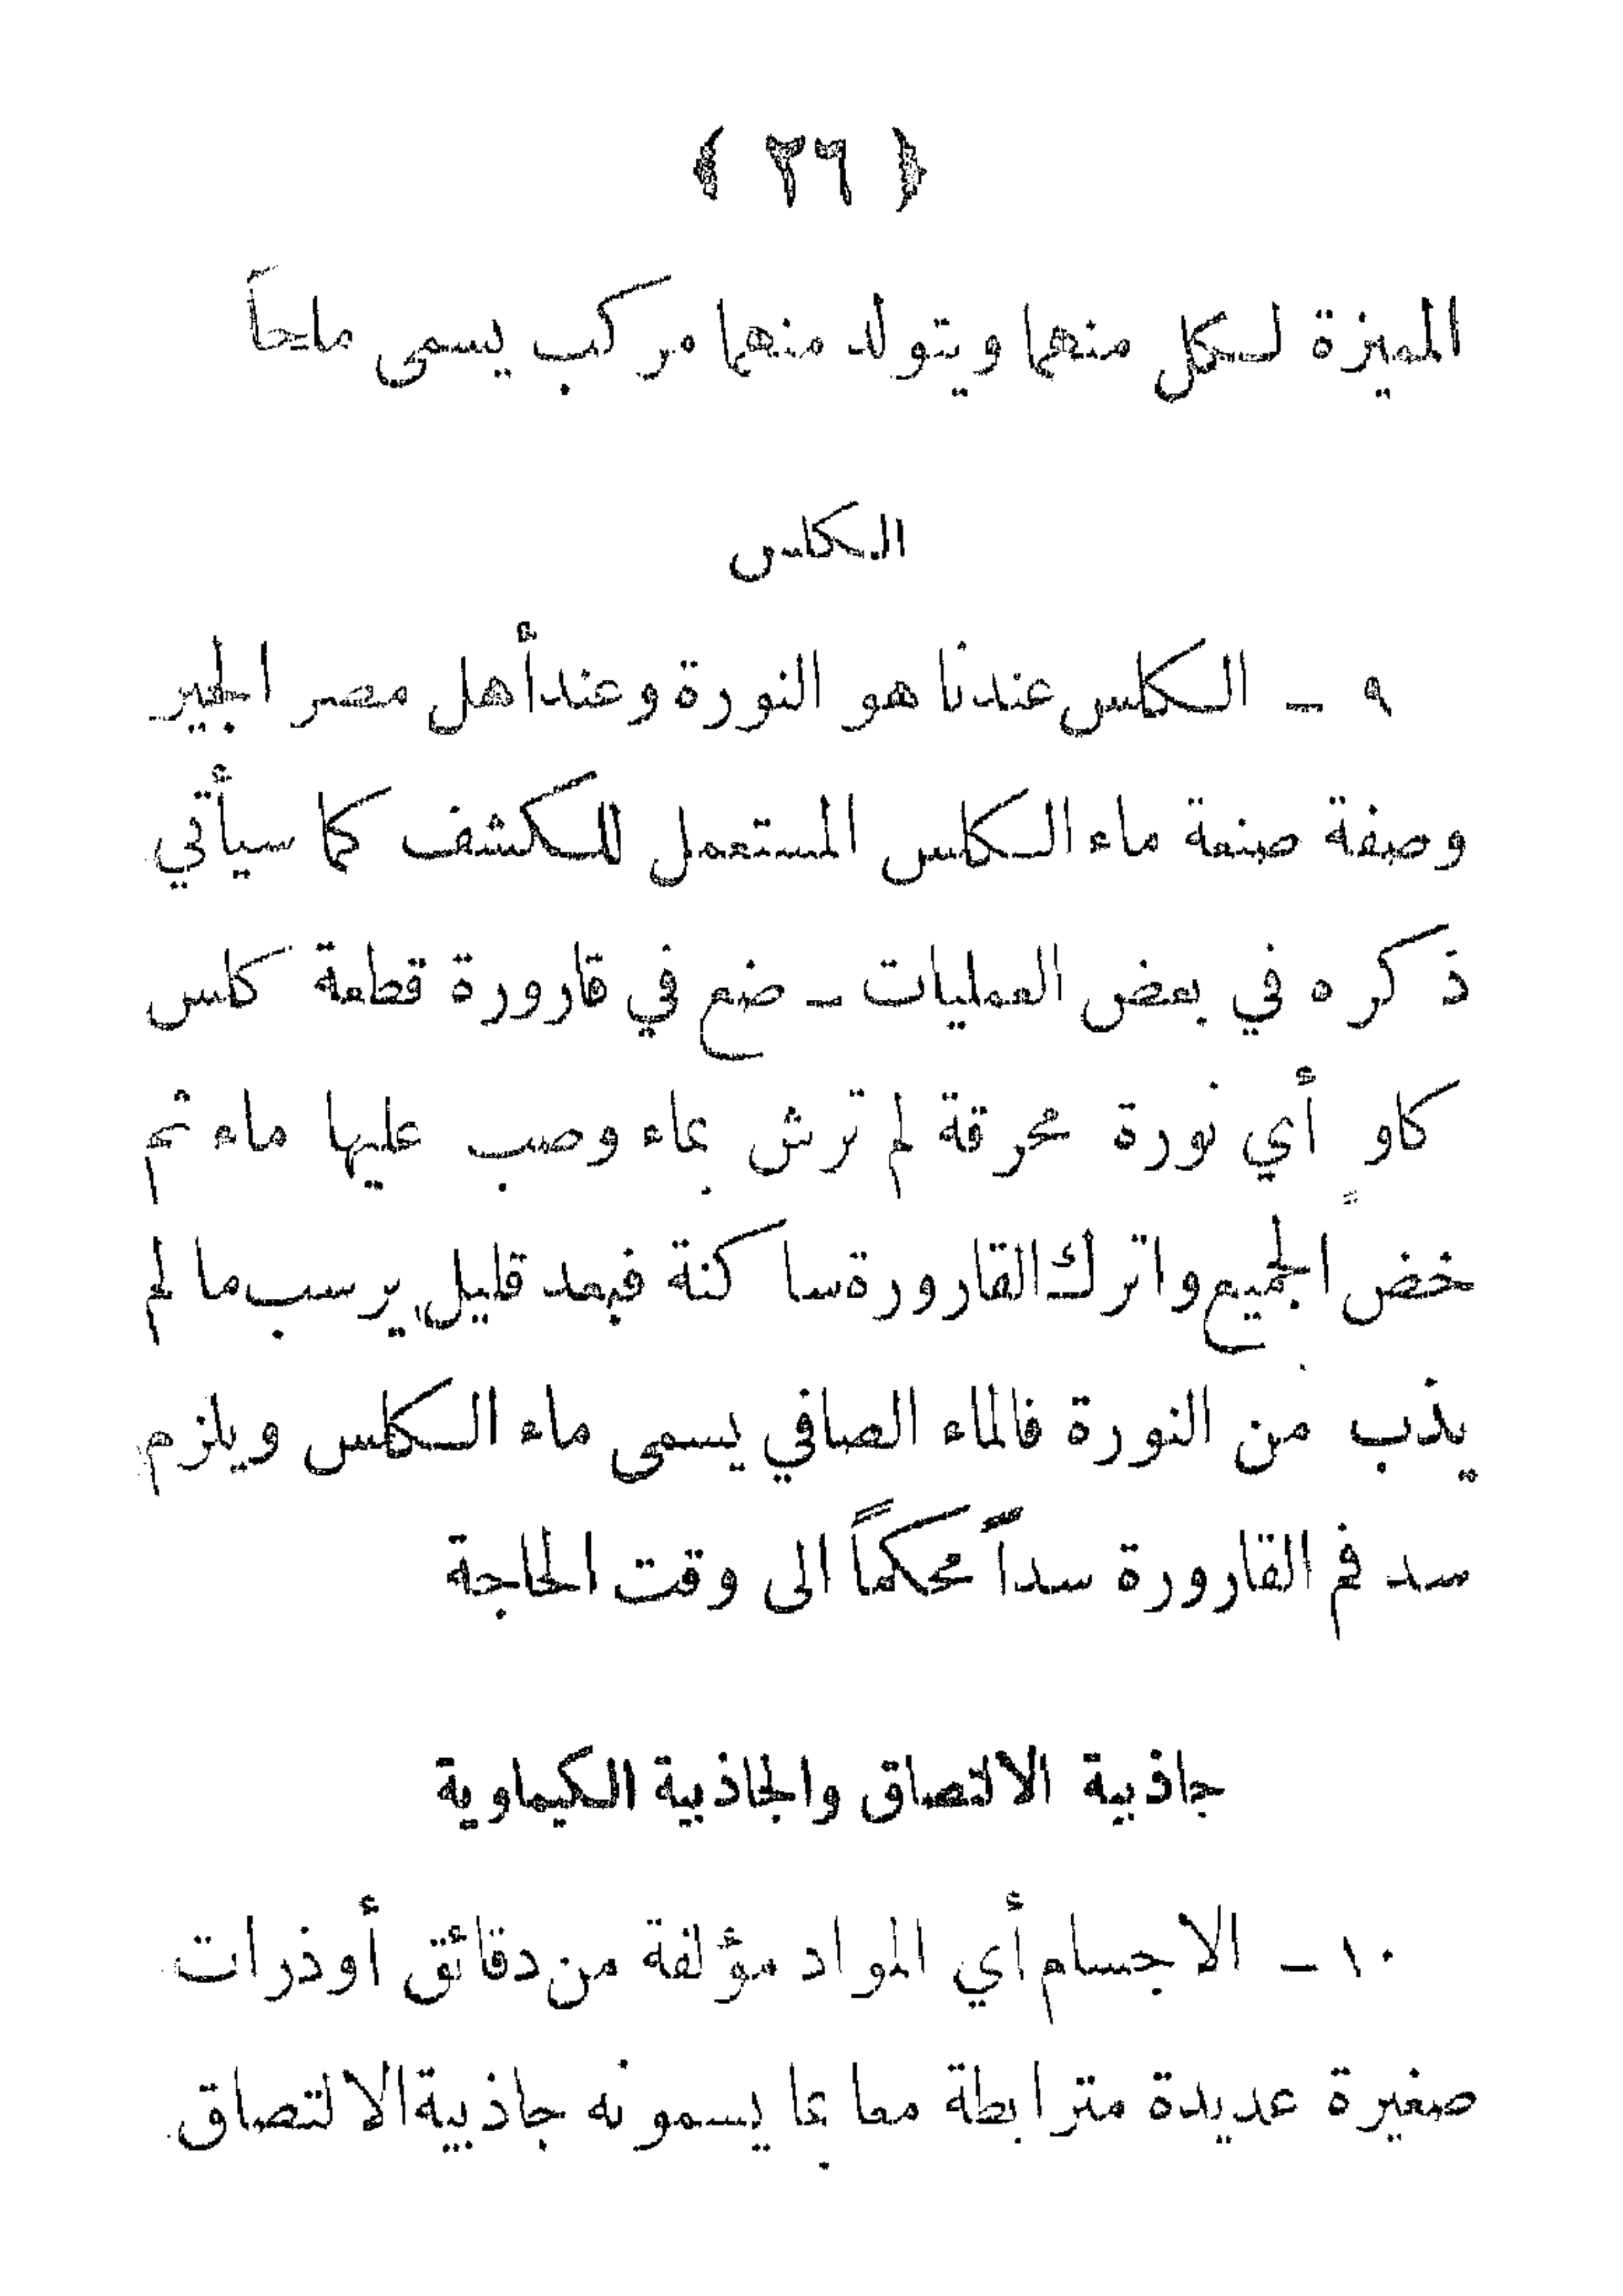 ﴿ ٢٦ ﴾
المميزة لكل منهما ويتولد منهما مركب يسمى ملحاً
الكلس
٩ – الكلس عندنا هو النورة وعند أهل مصر الجير
وصفة صنعة ماء الكلس المستعمل للكشف كما سيأتي
ذكره في بعض العمليات – ضع في قارورة قطعة كلس
كاوٍ أي نورة محرقة لم ترش بماء وصب عليها ماء ثم
خض الجميع واترك القارورة ساكنة فبعد قليل يرسب ما لم
يذب من النورة فالماء الصافي يسمى ماء الكلس ويلزم
سد فم القارورة سداً محكماً الى وقت الحاجة
جاذبية الالتصاق والجاذبية الكيماوية
١٠ – الاجسام أي المواد مؤلفة من دقائق أو ذرات
صغيرة عديدة مترابطة معا بما يسمونه جاذبية الالتصاق